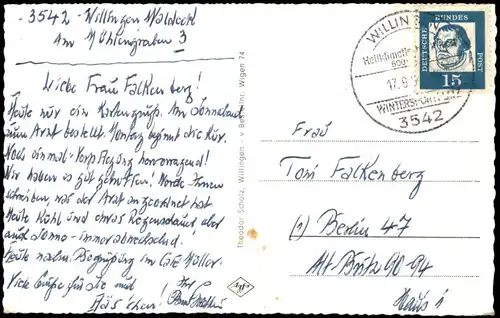 3542 - Willingen Waldeck
Am Mühlengraben 3
Liebe Frau Falkenberg!
Heute nur ein Kartengruß. Am Sonnabend
zum Arzt bestellt. Montag beginnt die Kur.
Noch einmal: Verpflegung hervorragend!
Wir haben es gut getroffen! Werde Ihnen
schreiben, was der Arzt angeordnet hat.
Heute kühl und etwas Regenschauer aber
auch Sonne - immer abwechselnd.
Heute nachm. Begrüßung im Café Müller.
Viele Grüße für Sie und
Häs'chen! Ihr
Theodor Scholz, Willingen - Bestellnr. Wigen 74
Agfa
WILLINGEN
Heilklimatischer
17.9.
WINTERSPORTPLATZ
3542
DEUTSCHE BUNDESPOST
15
Frau
Toni Falkenberg
(1) Berlin 47
Alt-Britz 90-94
Haus 1